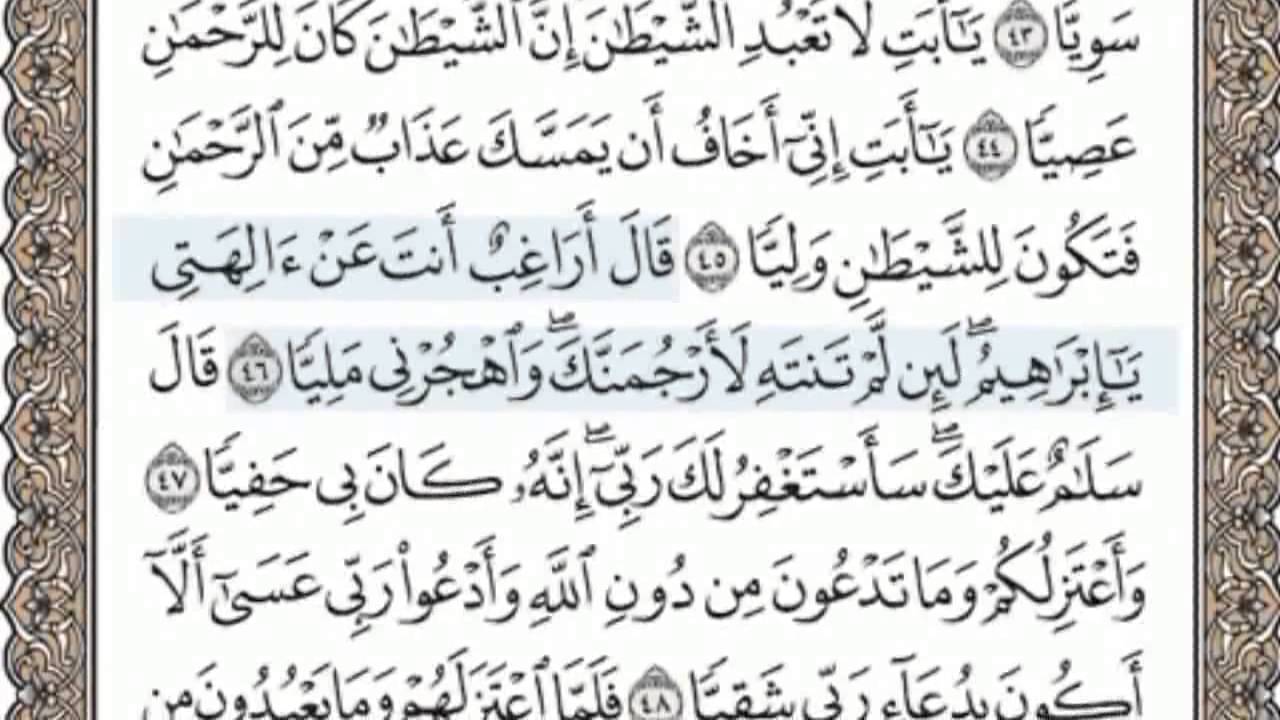 سَوِيًّا ٤٣ يَـٰٓأَبَتِ لَا تَعْبُدِ ٱلشَّيْطَـٰنَ إِنَّ ٱلشَّيْطَـٰنَ كَانَ لِلرَّحْمَـٰنِ
عَصِيًّا ٤٤ يَـٰٓأَبَتِ إِنِّىٓ أَخَافُ أَن يَمَسَّكَ عَذَابٌ مِّنَ ٱلرَّحْمَـٰنِ
فَتَكُونَ لِلشَّيْطَـٰنِ وَلِيًّا ٤٥ قَالَ أَرَاغِبٌ أَنتَ عَنْ ءَالِهَتِى
يَـٰٓإِبْرَٰهِيمُ ۖ لَئِن لَّمْ تَنتَهِ لَأَرْجُمَنَّكَ ۖ وَٱهْجُرْنِى مَلِيًّا ٤٦ قَالَ
سَلَـٰمٌ عَلَيْكَ ۖ سَأَسْتَغْفِرُ لَكَ رَبِّىٓ ۖ إِنَّهُۥ كَانَ بِى حَفِيًّا ٤٧
وَأَعْتَزِلُكُمْ وَمَا تَدْعُونَ مِن دُونِ ٱللَّهِ وَأَدْعُوا۟ رَبِّى عَسَىٰٓ أَلَّآ
أَكُونَ بِدُعَآءِ رَبِّى شَقِيًّا ٤٨ فَلَمَّا ٱعْتَزَلَهُمْ وَمَا يَعْبُدُونَ مِن